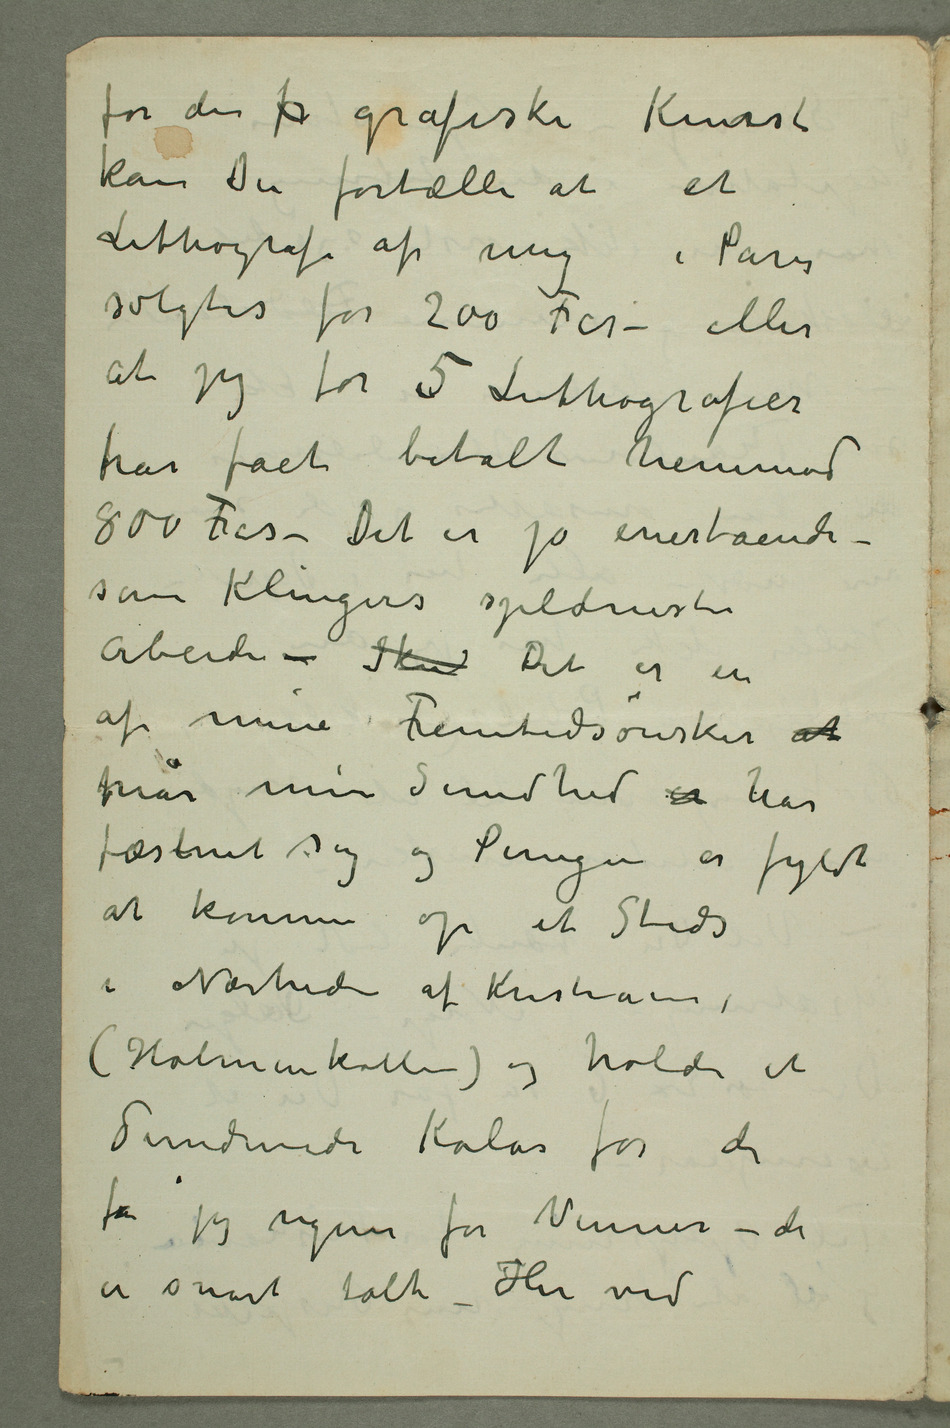 for den fr grafiske Kunst
kan Du fortælle at et
Lithografi af mig i Paris
solgtes for 200 Fcs – eller
at jeg for 5 Lithografier
har faet betalt henimod
800 Fcs – Det er jo enestaaende –
som Klingers sjeldneste
Arbeide – Skul Det er en
af mine Fremtidsönsker at
når min Sundhed er har
fæstnet sig og Pungen er fyldt
at komme op et Steds
i Nærheden af Kristiania,
(Holmenkollen) og holde et
Dundrende Kalas for de
få jeg regner for Venner – de
er snart talt – Her ved